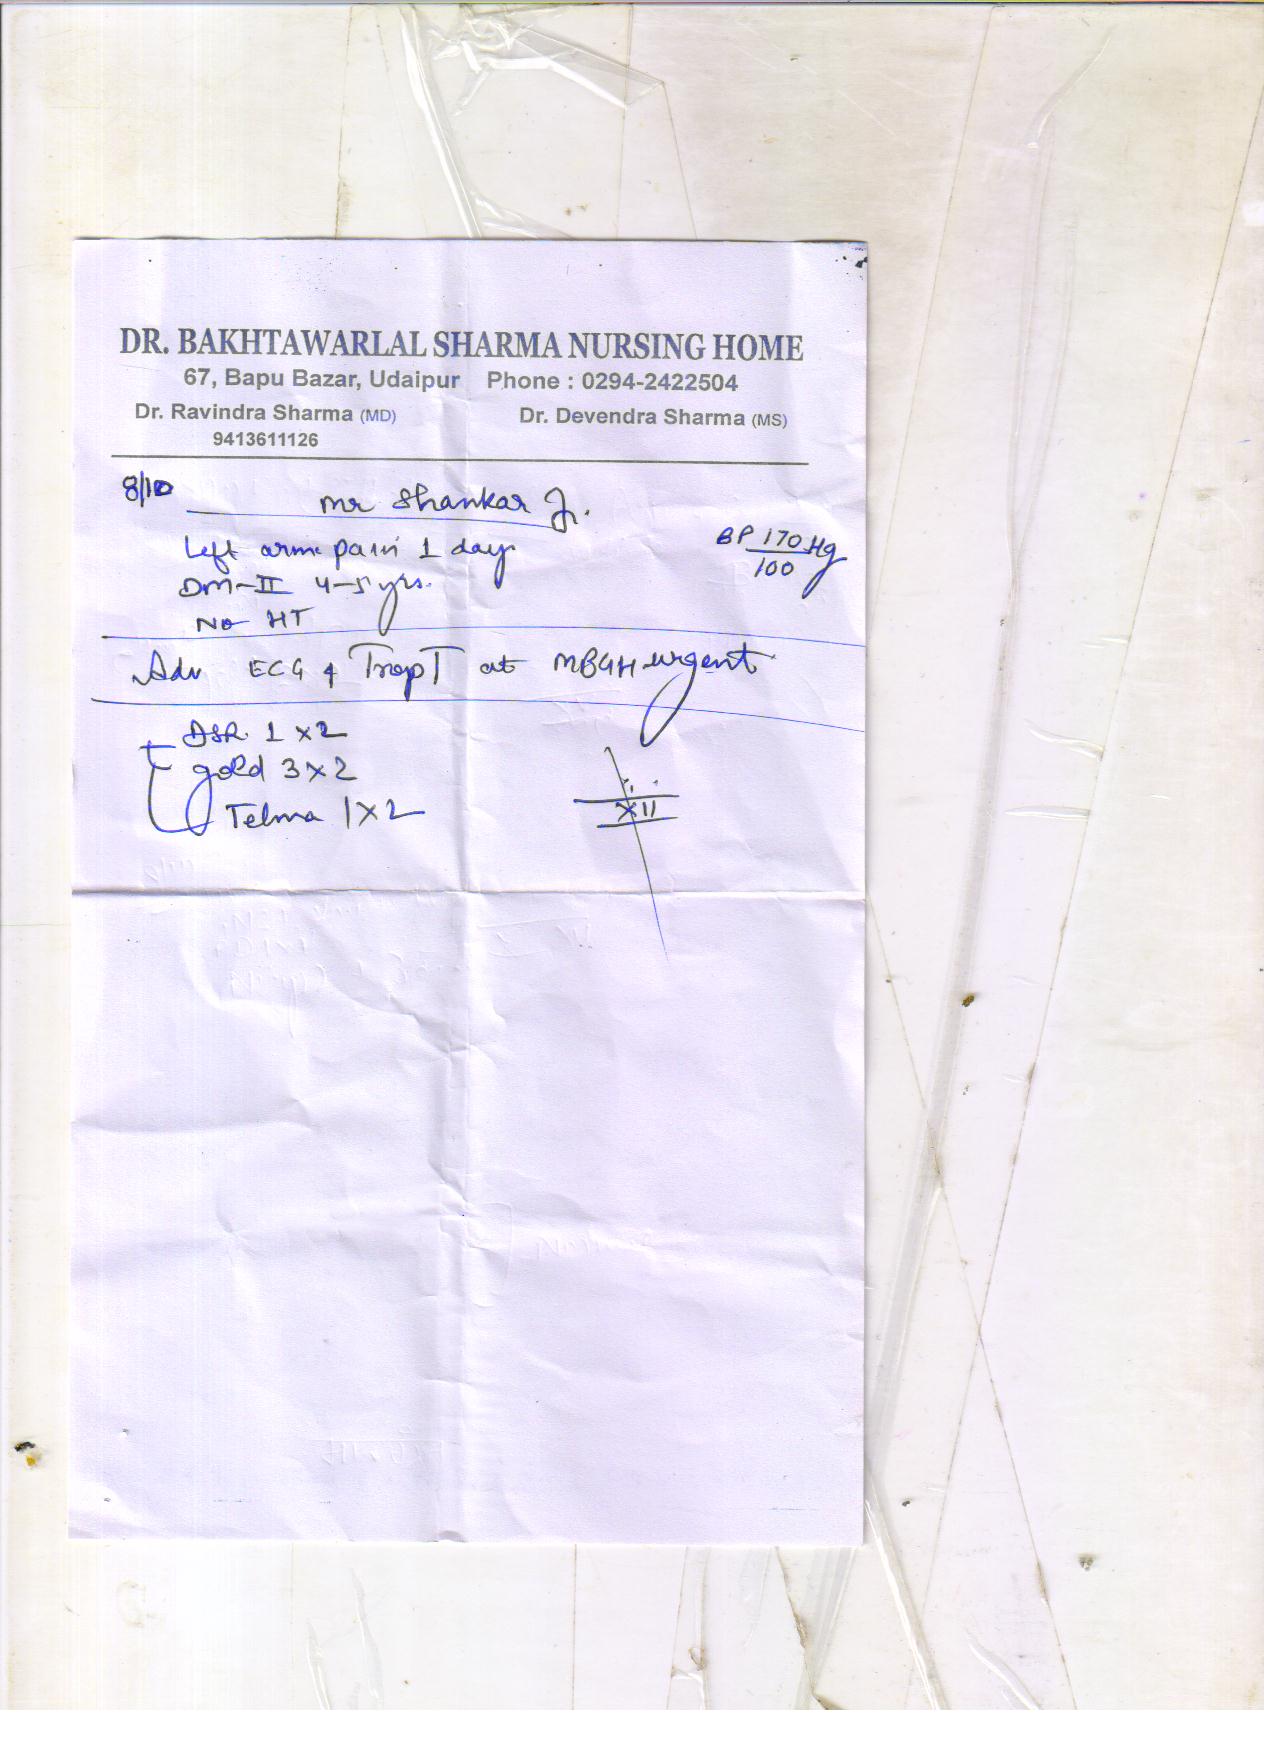 DR. BAKHTAWARLAL SHARMA NURSING HOME
67, Bapu Bazar, Udaipur Phone : 0294-2422504
Dr. Ravindra Sharma (MD) Dr. Devendra Sharma (MS)
9413611126
8/10 Mr Shankar Ji.
Left arm pain 1 day
BP 170/100 Hg
DM-II 4-5 yrs.
No HT
Adv ECG & Trop T at MBGH urgent
1 x 2
gold 3 x 2
Telma 1 x 2
XII